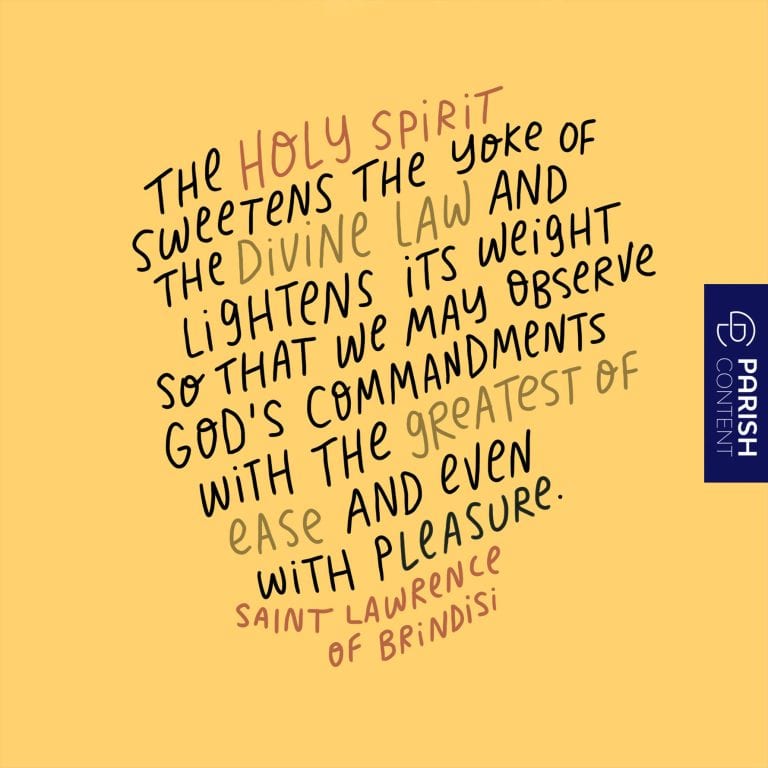 THE HOLY SPIRIT
SWEETENS THE YOKE OF
THE DIVINE LAW AND
LIGHTENS ITS WEIGHT
SO THAT WE MAY OBSERVE
GOD'S COMMANDMENTS
WITH THE GREATEST OF
EASE AND EVEN
WITH PLEASURE.
SAINT LAWRENCE
OF BRINDISI
PARISH
CONTENT